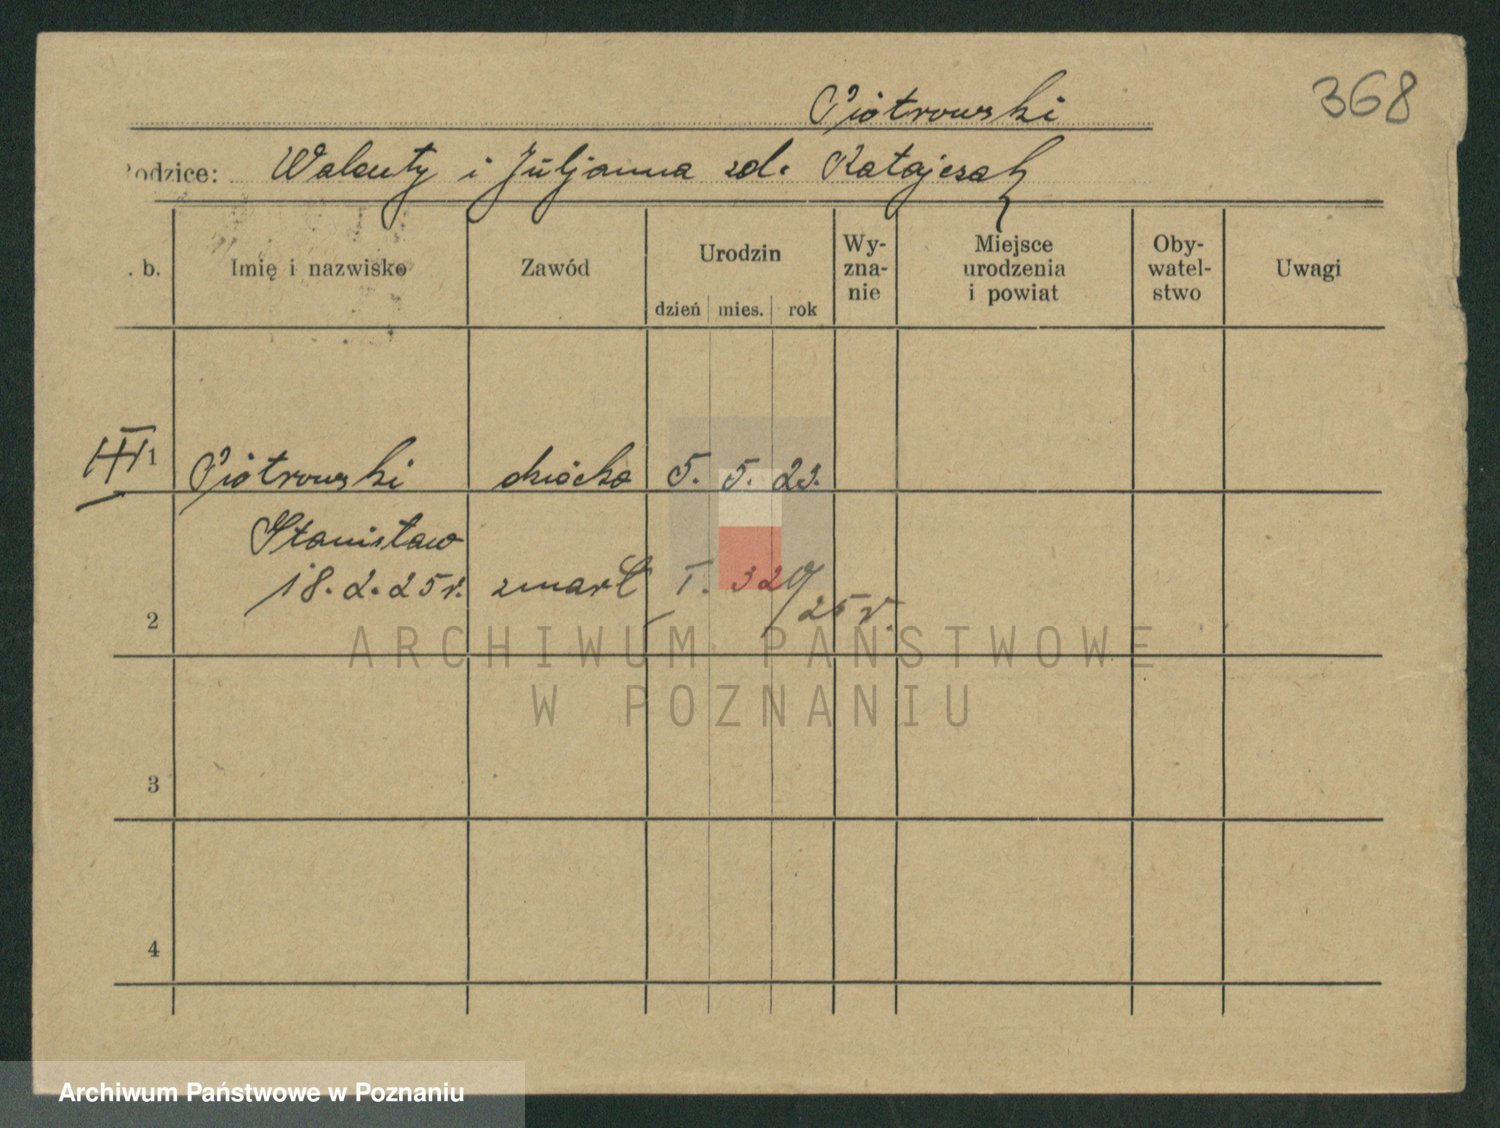 368
Piotrowski
Rodzice: Walenty i Juljanna zd. Ratajczak
. b. Imię i nazwisko Zawód Urodzin dzień mies. rok Wy-zna-nie Miejsce urodzenia i powiat Oby-watel-stwo Uwagi
III 1 Piotrowski dziecko 5. 5. 23.
Stanisław
2 18.2.25r. zmarł T. 320/25 r.
3
4
ARCHIWUM PAŃSTWOWE
W POZNANIU
Archiwum Państwowe w Poznaniu